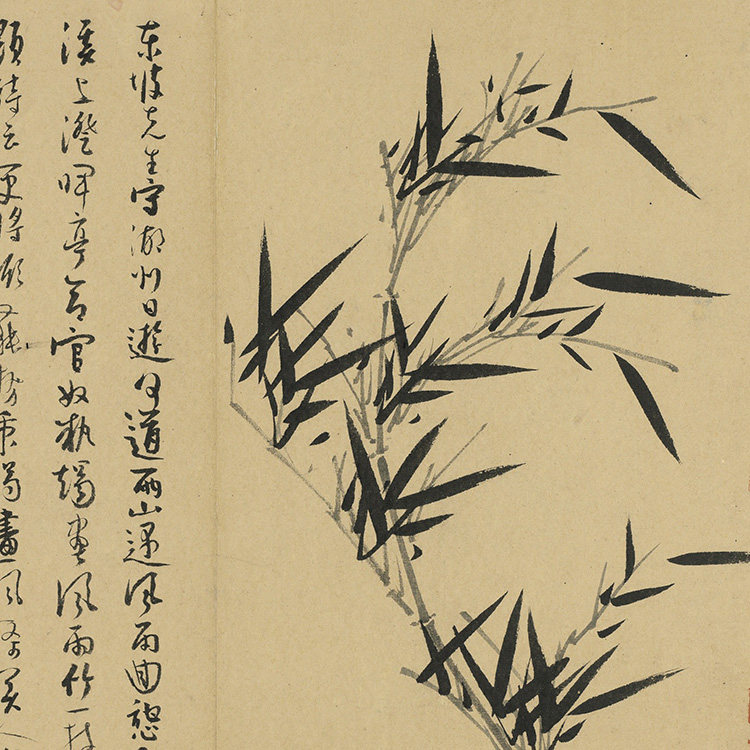 東坡先生守湖州日遊何道兩山遇風雨回憩
溪上澄暉亭命官奴執燭畫風雨竹一枝
題詩云更將掀舞勢秉燭畫風筱美